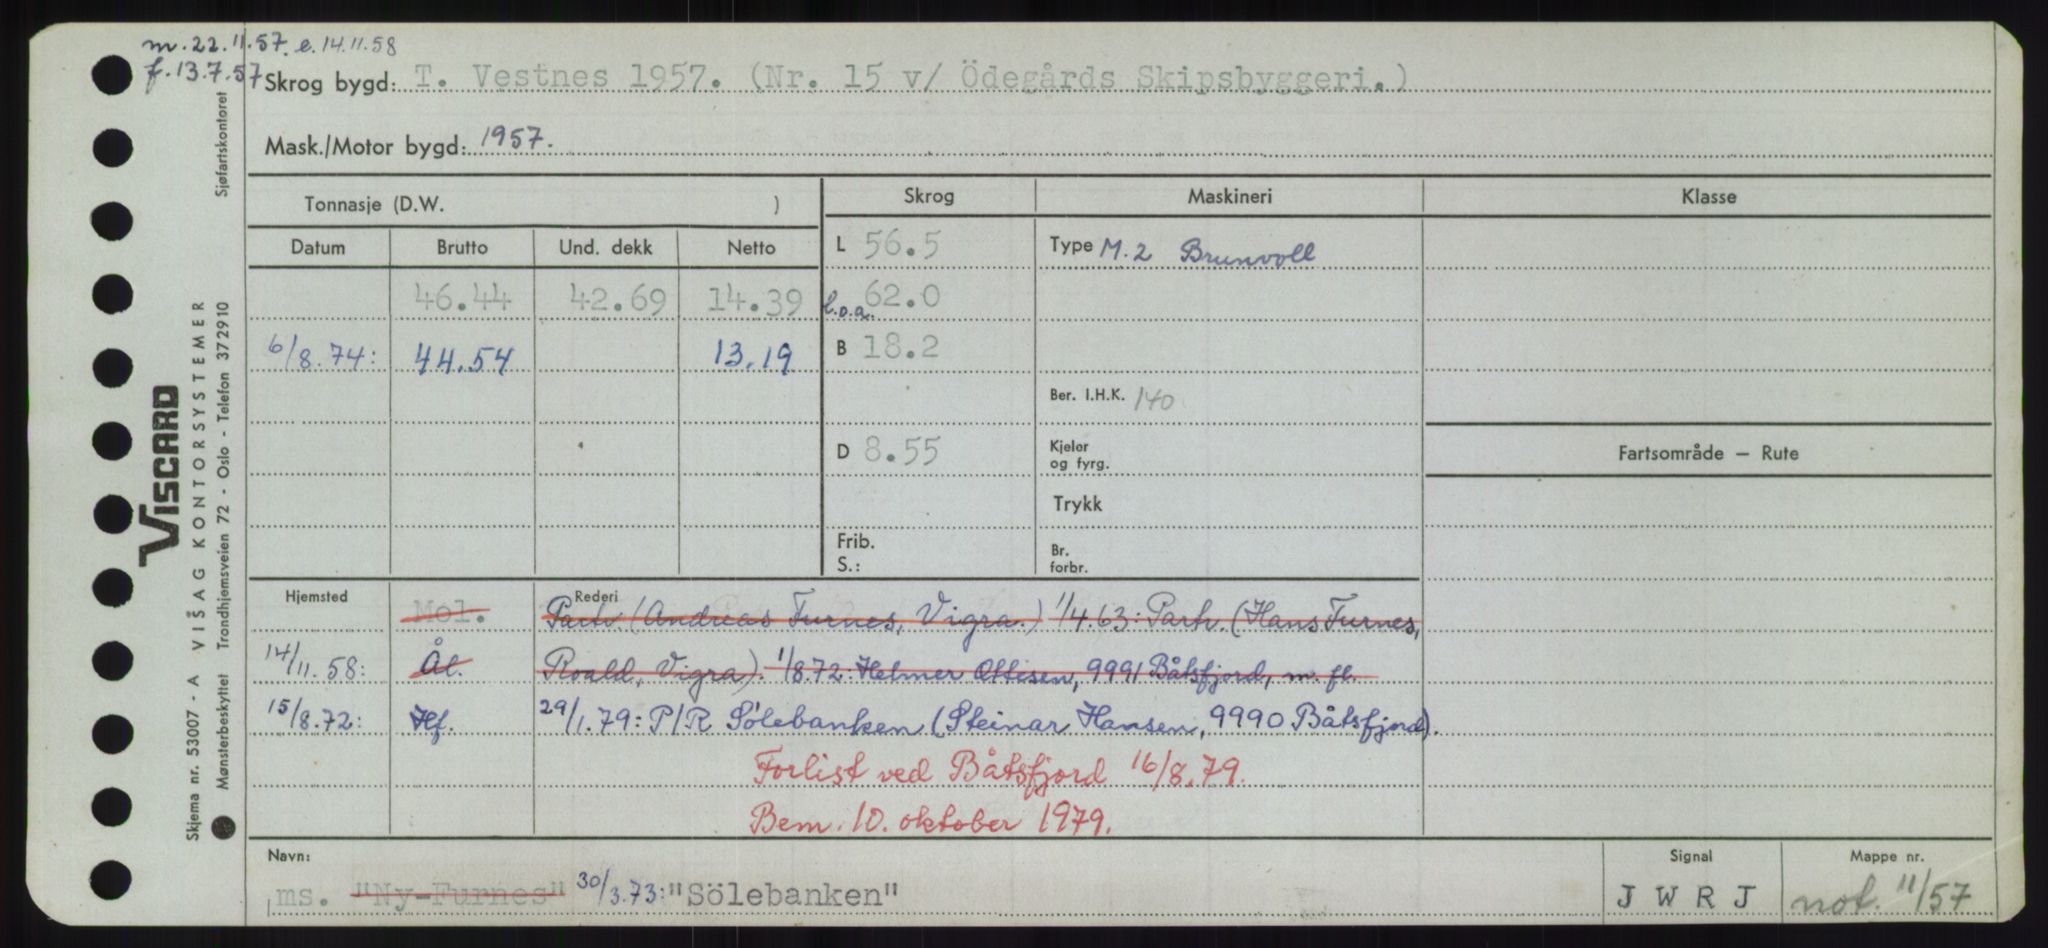 m. 22.11.57. e. 14.11.58
f. 13.7.57
Skrog bygd: T. Vestnes 1957. (Nr. 15 v/ Ödegårds Skipsbyggeri.)
Mask./Motor bygd: 1957.
Tonnasje (D.W. )
Skrog Maskineri Klasse
Datum Brutto Und. dekk Netto
L 56.5 Type M.2 Brunvoll
46.44 42.69 14.39 l.o.a. 62.0
6/8.74: 44.54 13.19 B 18.2
Ber. I.H.K. 140
D 8.55 Kjeler og fyrg.
Fartsområde — Rute
Trykk
Frib.
S.:
Br. forbr.
Hjemsted Mol. Rederi Partr. (Andreas Furnes, Vigra.) 1/4.63: Partr. (Hans Furnes,
14/11.58: Ål. Roald, Vigra). 1/8.72: Helmer Ottesen, 9991 Båtsfjord, m. fl.
15/8.72: Hf. 29/1.79: P/R Sölebanken (Steinar Hansen, 9990 Båtsfjord).
Forlist ved Båtsfjord 16/8.79.
Bem. 10. oktober 1979.
Navn: Signal Mappe nr.
ms. "Ny-Furnes" 30/3.73: "Sölebanken" J W R J not. 11/57
VISCARD
Skjema nr. 53007 - A VISAG KONTORSYSTEMER
Mønsterbeskyttet Trondhjemsveien 72 - Oslo - Telefon 372910
Sjøfartskontoret